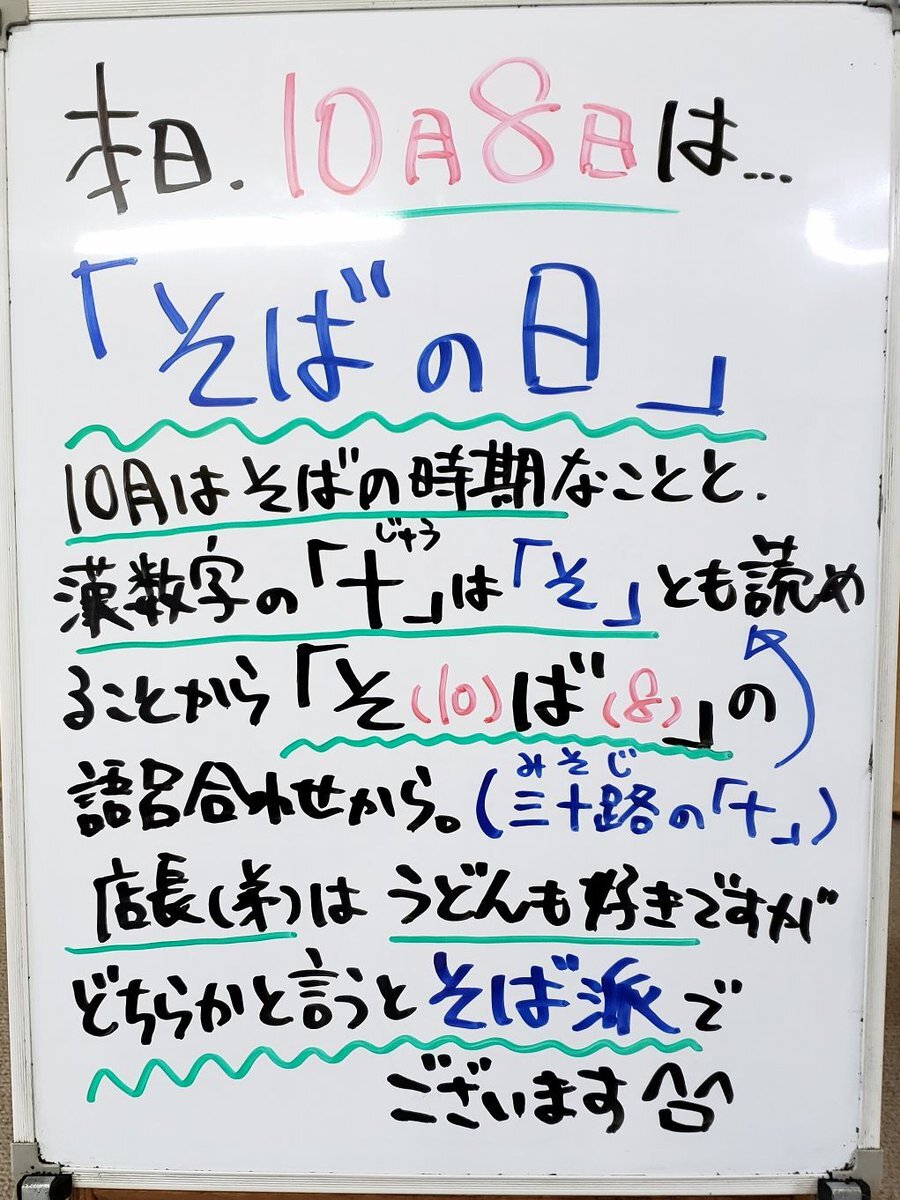 本日、10月8日は…
「そばの日」
10月はそばの時期なことと、
漢数字の「十」は「そ」とも読め
じゅう
ることから「そ(10)ば(8)」の
語呂合わせから。(三十路の「十」)
みそじ
店長(弟)はうどんも好きですが
どちらかと言うとそば派で
ございます^口^